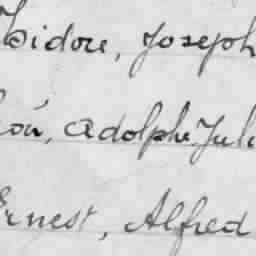 Isidore, Joseph
Léon, Adolphe Jule
Ernest, Alfred